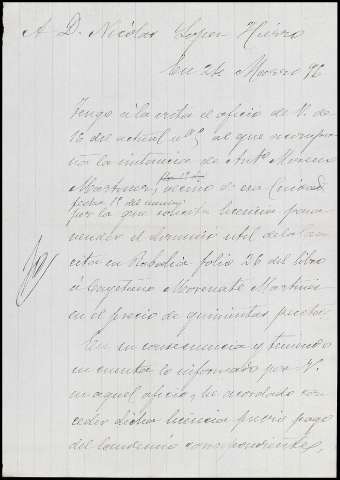 A D. Nicolas Lopez Hierro
En 24 Marzo 92
Tengo á la vista el oficio de V. de
16 del actual al que acompa
ña la instancia de Antº Moreno
Martinez, vecino de esa Ciudad
fecha 1º del mismo
por la que solicita licencia para
vender el dominio util de la
cita en Robalia folio 26 del libro
á Cayetano Morenate Martinez
en el precio de quinientas pesetas
En su consecuencia y teniendo
en cuenta lo informado por V.
en aquel oficio, he acordado con
ceder dicha licencia previo pago
del laudemio correspondiente,